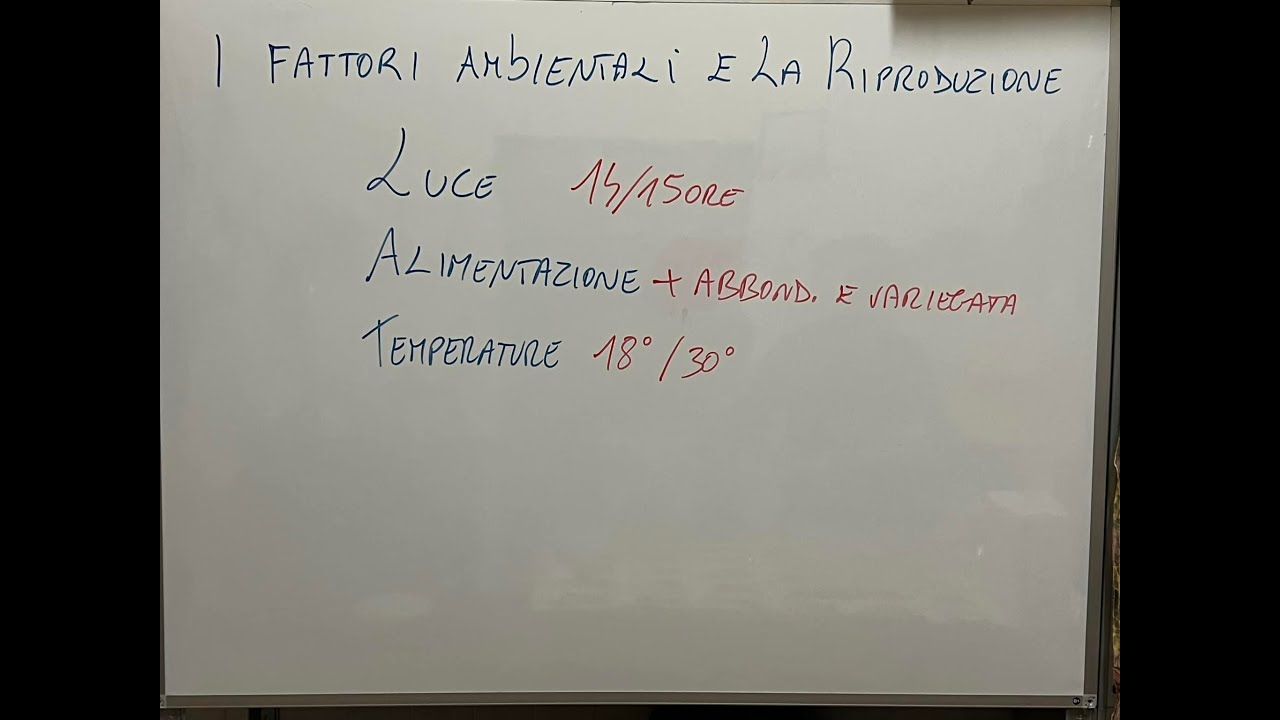 I FATTORI AMBIENTALI E LA RIPRODUZIONE
LUCE 14/15 ORE
ALIMENTAZIONE + ABBOND. E VARIEGATA
TEMPERATURE 18°/30°